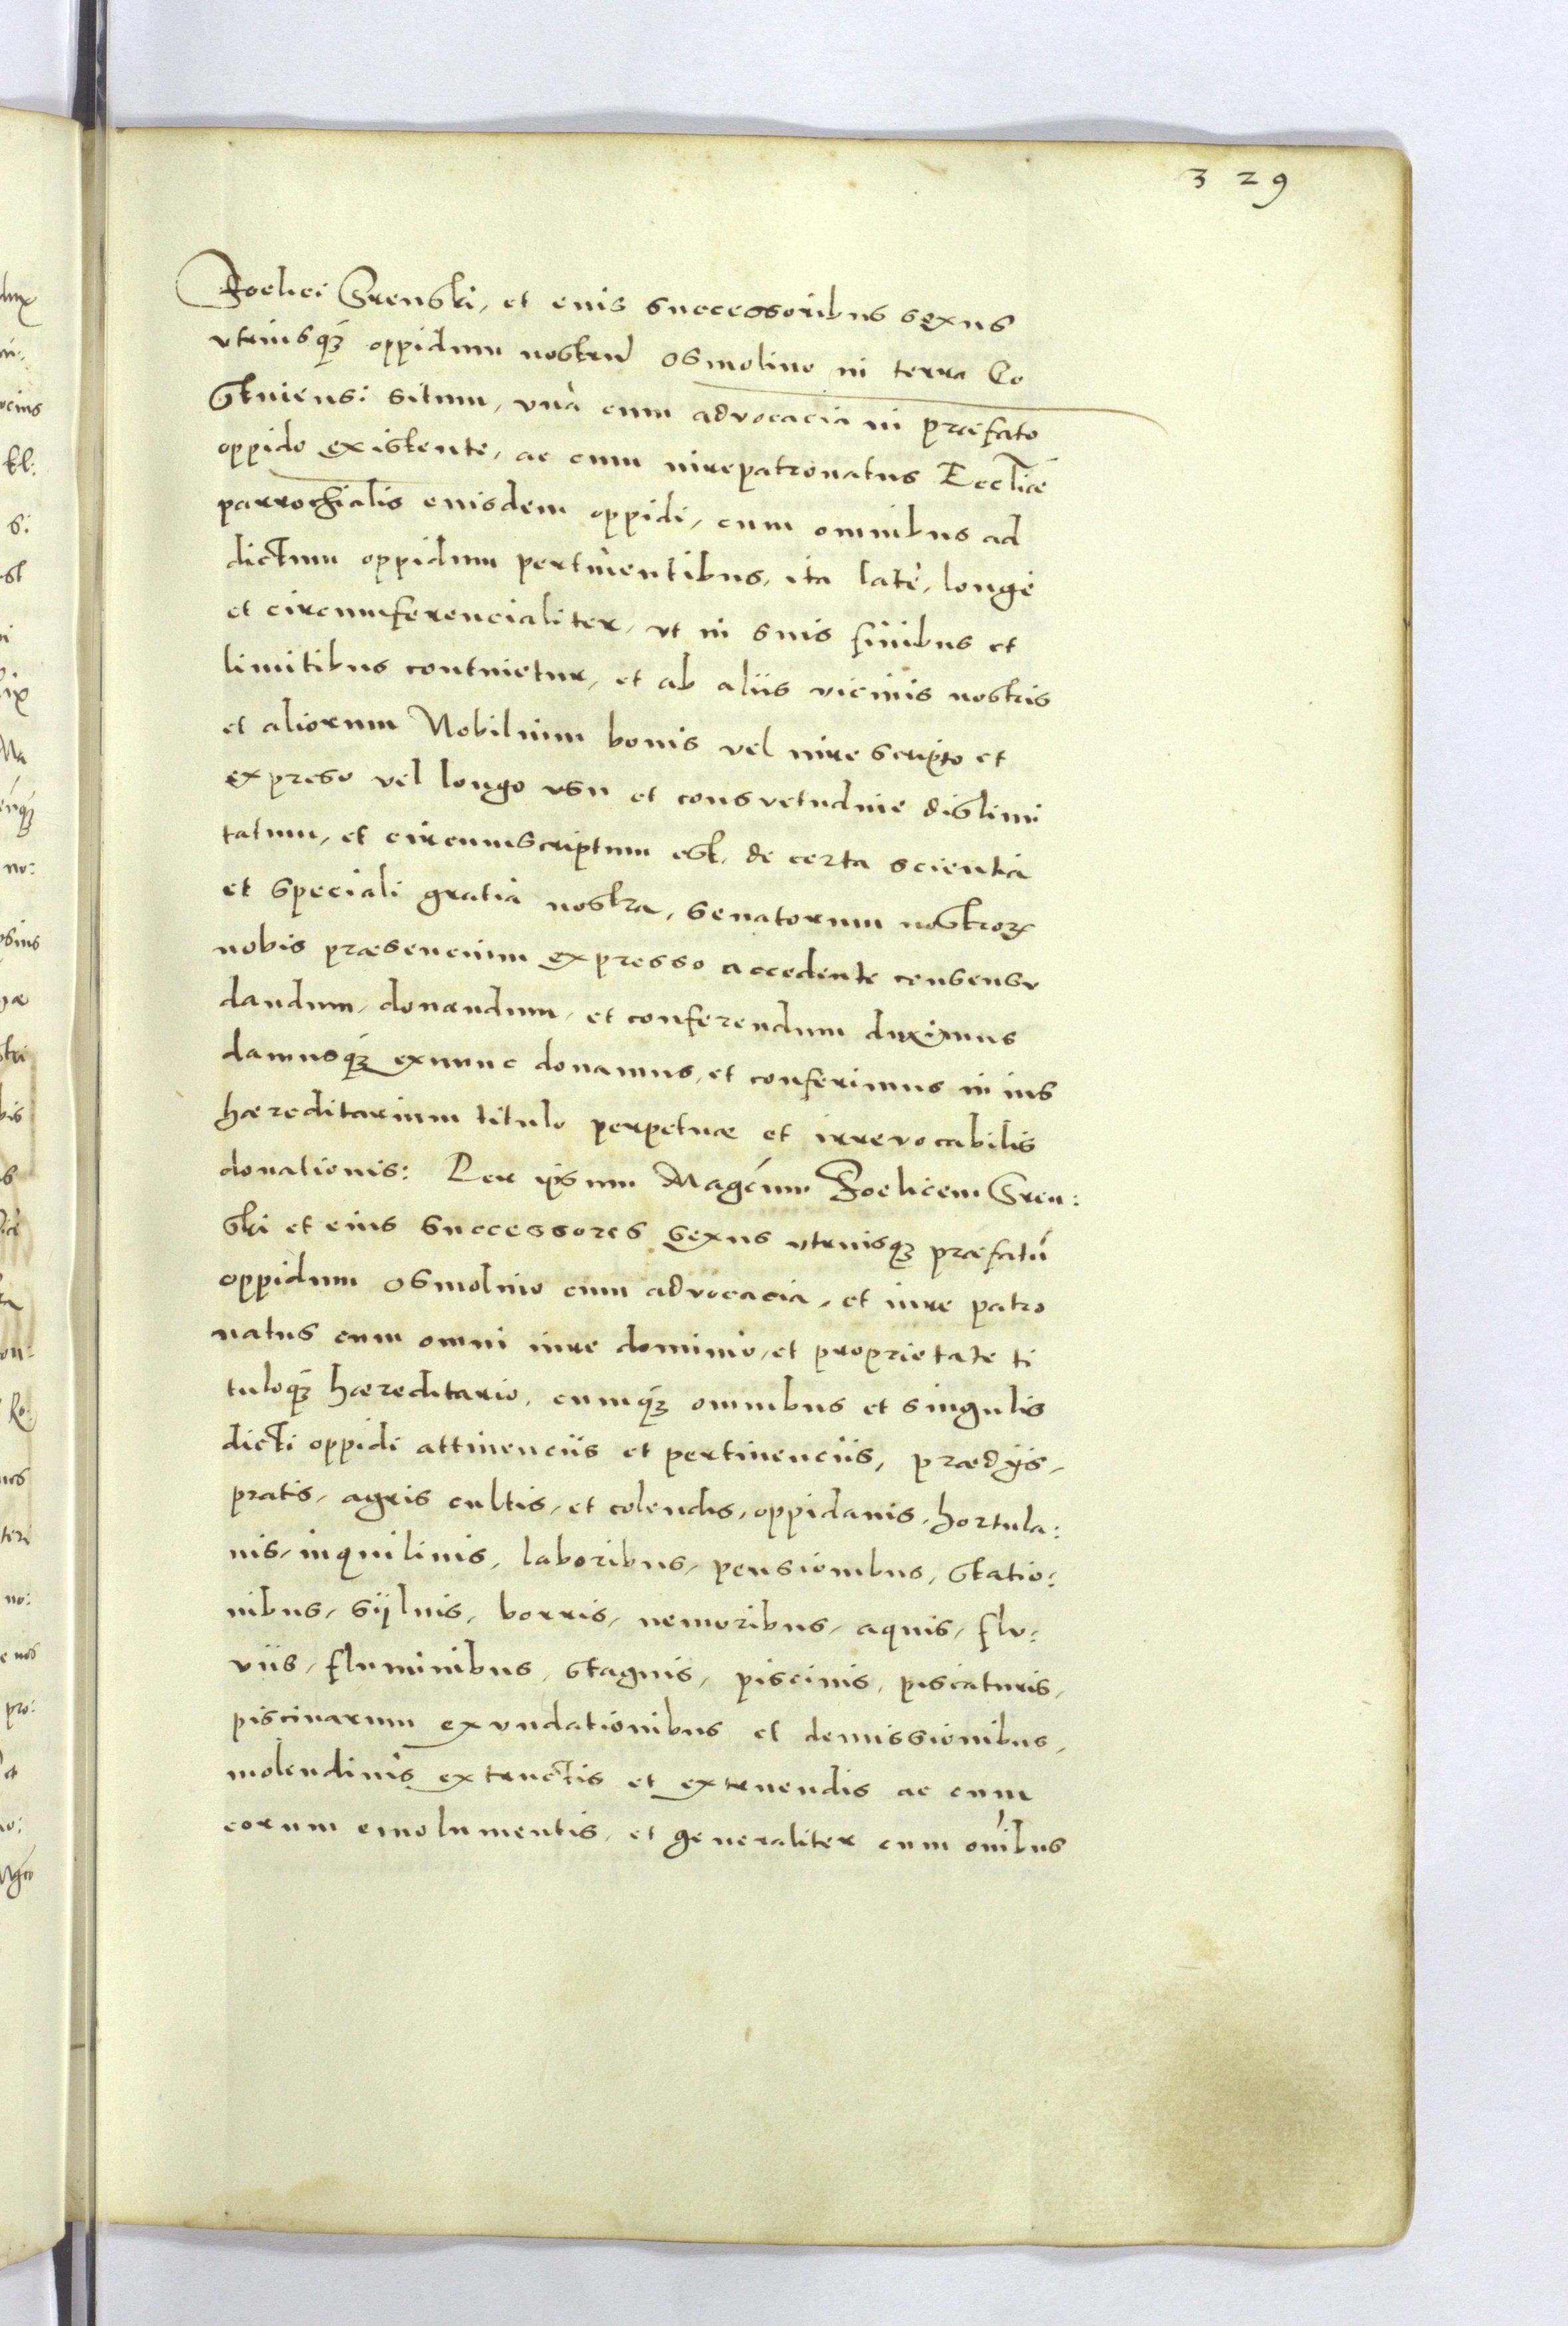 329
Foelici Srenski, et eius successoribus sexus
vtriusq3 oppidum nostrū Osmolino in terra Go
stiniensi situm, vnà cum advocacia in præfato
oppido existente, ac cum iurepatronatus Eccliæ
parrochialis eiusdem oppidi, cum omnibus ad
dictum oppidum pertinentibus, ita latè, longè
et circumferencialiter, vt in suis finibus et
limitibus continetur, et ab aliis vicinis nostris
et aliorum Nobilium bonis vel iure scripto et
expreso vel longo vsu et consvetudine dislimi
tatum, et circumscriptum est, de certa scientia
et speciali gratia nostra, senatorum nostrorꝝ
nobis præsencium expresso accedente consensv
dandum, donandum, et conferendum duximus
damusq3 exnunc donamus, et conferimus in ius
hæreditarium titulo perpetuæ et irrevocabilis
donationis: Per ipsum Magcum Foelicem Sren:
ski et eius successores sexus vtriusq3 præfatū
oppidum Osmolino cum advocacia, et iure patro
natus cum omni iure dominio, et proprietate ti
tuloq3 hæreditario, cumq3 omnibus et singulis
dicti oppidi attinenciis et pertinenciis, prædijs,
pratis, agris cultis, et colendis, oppidanis, hortula:
nis, inquilinis, laboribus, pensionibus, statio:
nibus, sijluis, borris, nemoribus, aquis, flu:
viis, fluminibus, stagnis, piscinis, piscaturis,
piscinarum exundationibus et demissionibus,
molendinis extructis et extruendis ac cum
eorum emolumentis, et generaliter cum oīnibus